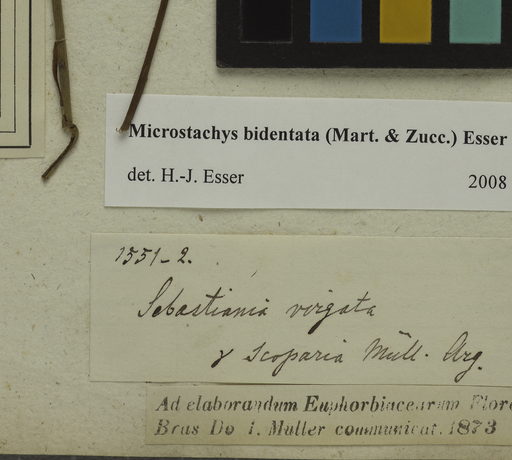 Microstachys bidentata (Mart. & Zucc.) Esser
det. H.-J. Esser
2008
1551-2.
Sebastiania virgata
γ scoparia Müll. Arg.
Ad elaborandum Euphorbiacearum Flor
Bras Do I. Muller communicat. 1873